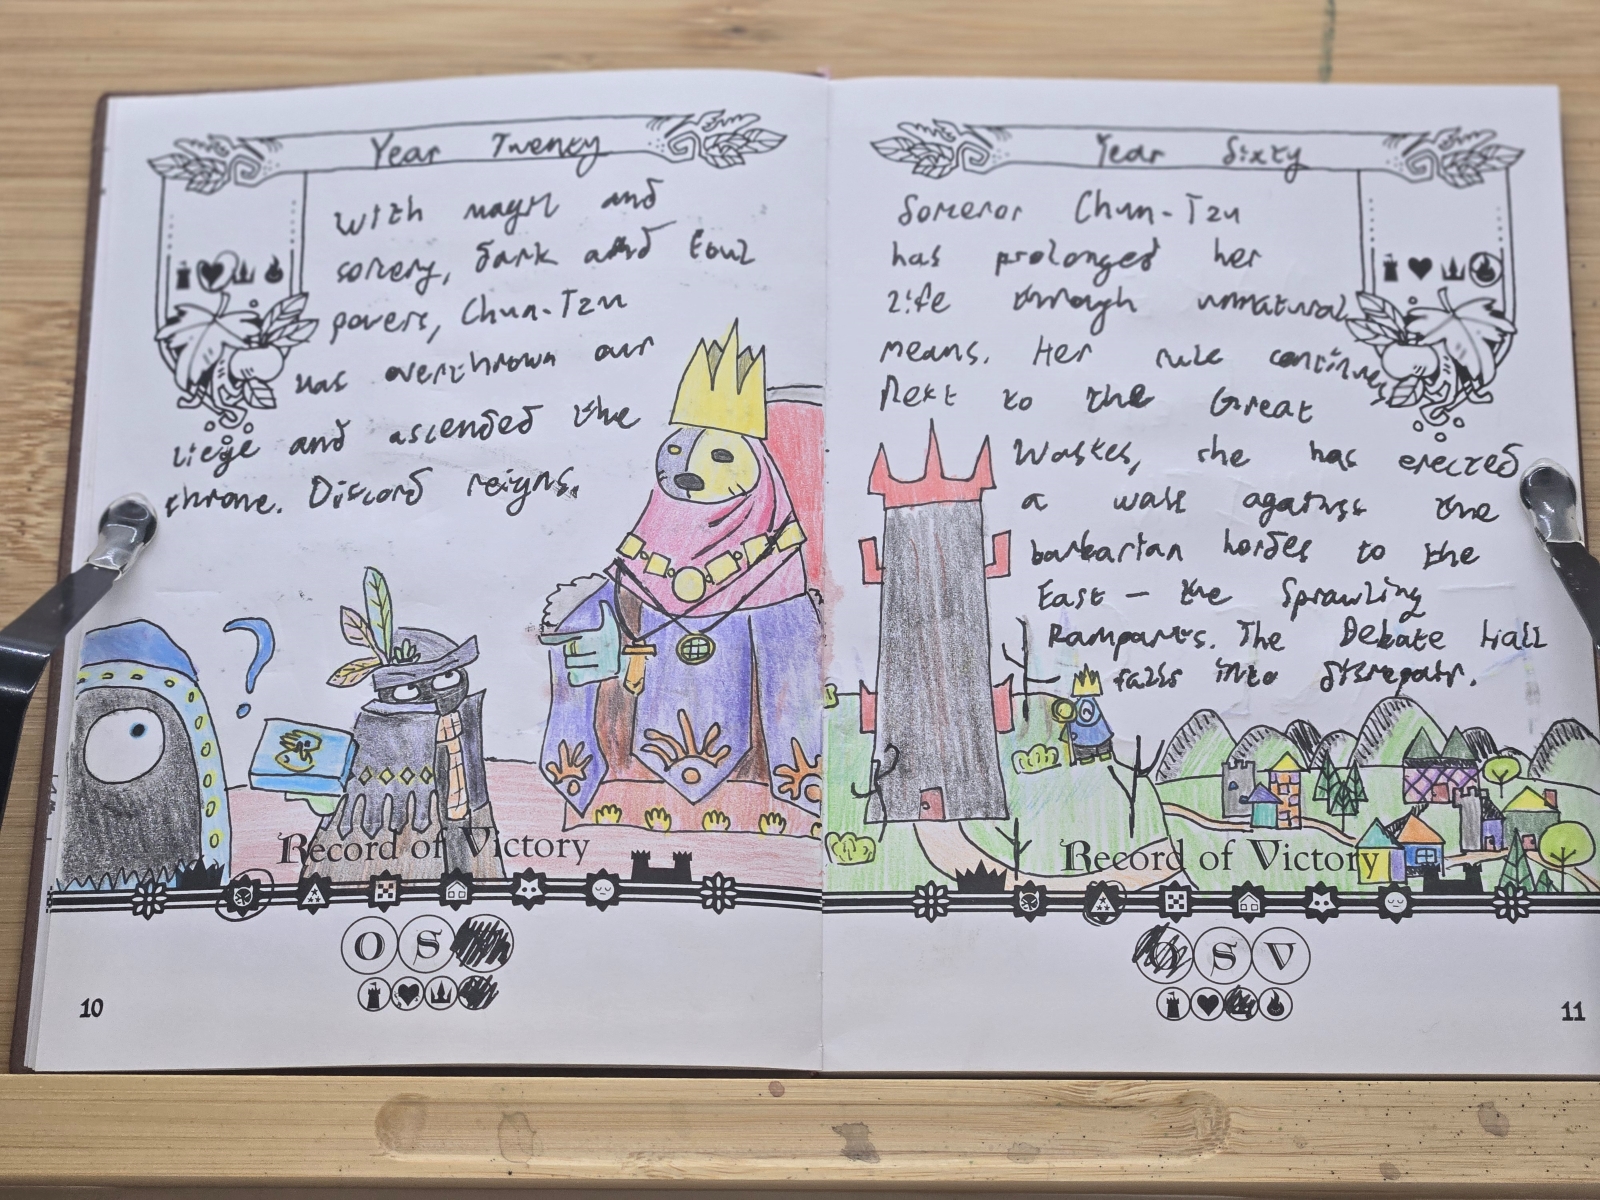 Year Twenty
With magic and
sorcery, dark and foul
powers, Chun-Tzu
has overthrown our
liege and ascended the
throne. Discord reigns.
?
Record of Victory
O S
10
Year Sixty
Sorceror Chun-Tzu
has prolonged her
life through unnatural
means. Her rule continues
Next to the Great
Wastes, she has erected
a wall against the
barbarian hordes to the
East — the Sprawling
Ramparts. The Debate Hall
falls into disrepair.
Record of Victory
S V
11